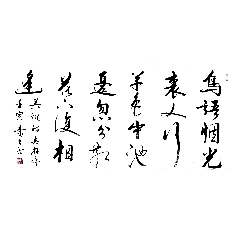 鳥語烟光
裏人行
草色中池
邊忽分散
花下復相
逢